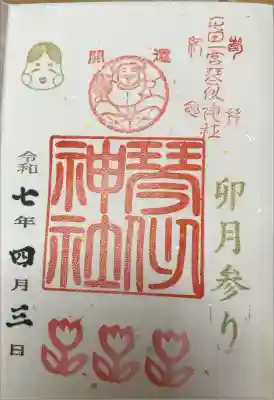 屯田一宮琴似神社
開運
卯月参り
琴似神社
令和七年四月三日